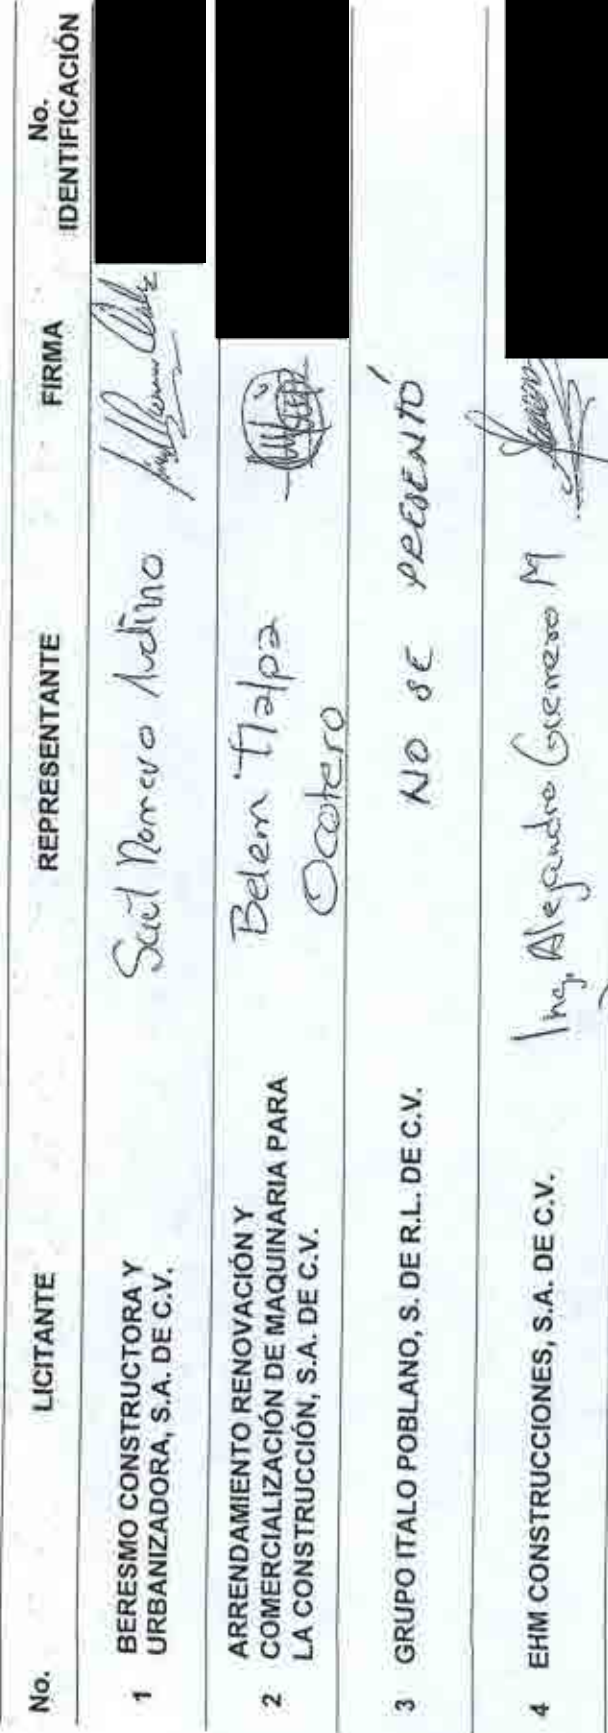 No. LICITANTE REPRESENTANTE FIRMA No. IDENTIFICACIÓN
1 BERESMO CONSTRUCTORA Y
URBANIZADORA, S.A. DE C.V.
Saúl Romero Andino
2 ARRENDAMIENTO RENOVACIÓN Y
COMERCIALIZACIÓN DE MAQUINARIA PARA
LA CONSTRUCCIÓN, S.A. DE C.V.
Belem Tlalpa
Ocotero
3 GRUPO ITALO POBLANO, S. DE R.L. DE C.V. NO SE PRESENTÓ
4 EHM CONSTRUCCIONES, S.A. DE C.V. Ing. Alejandro Guerrero M